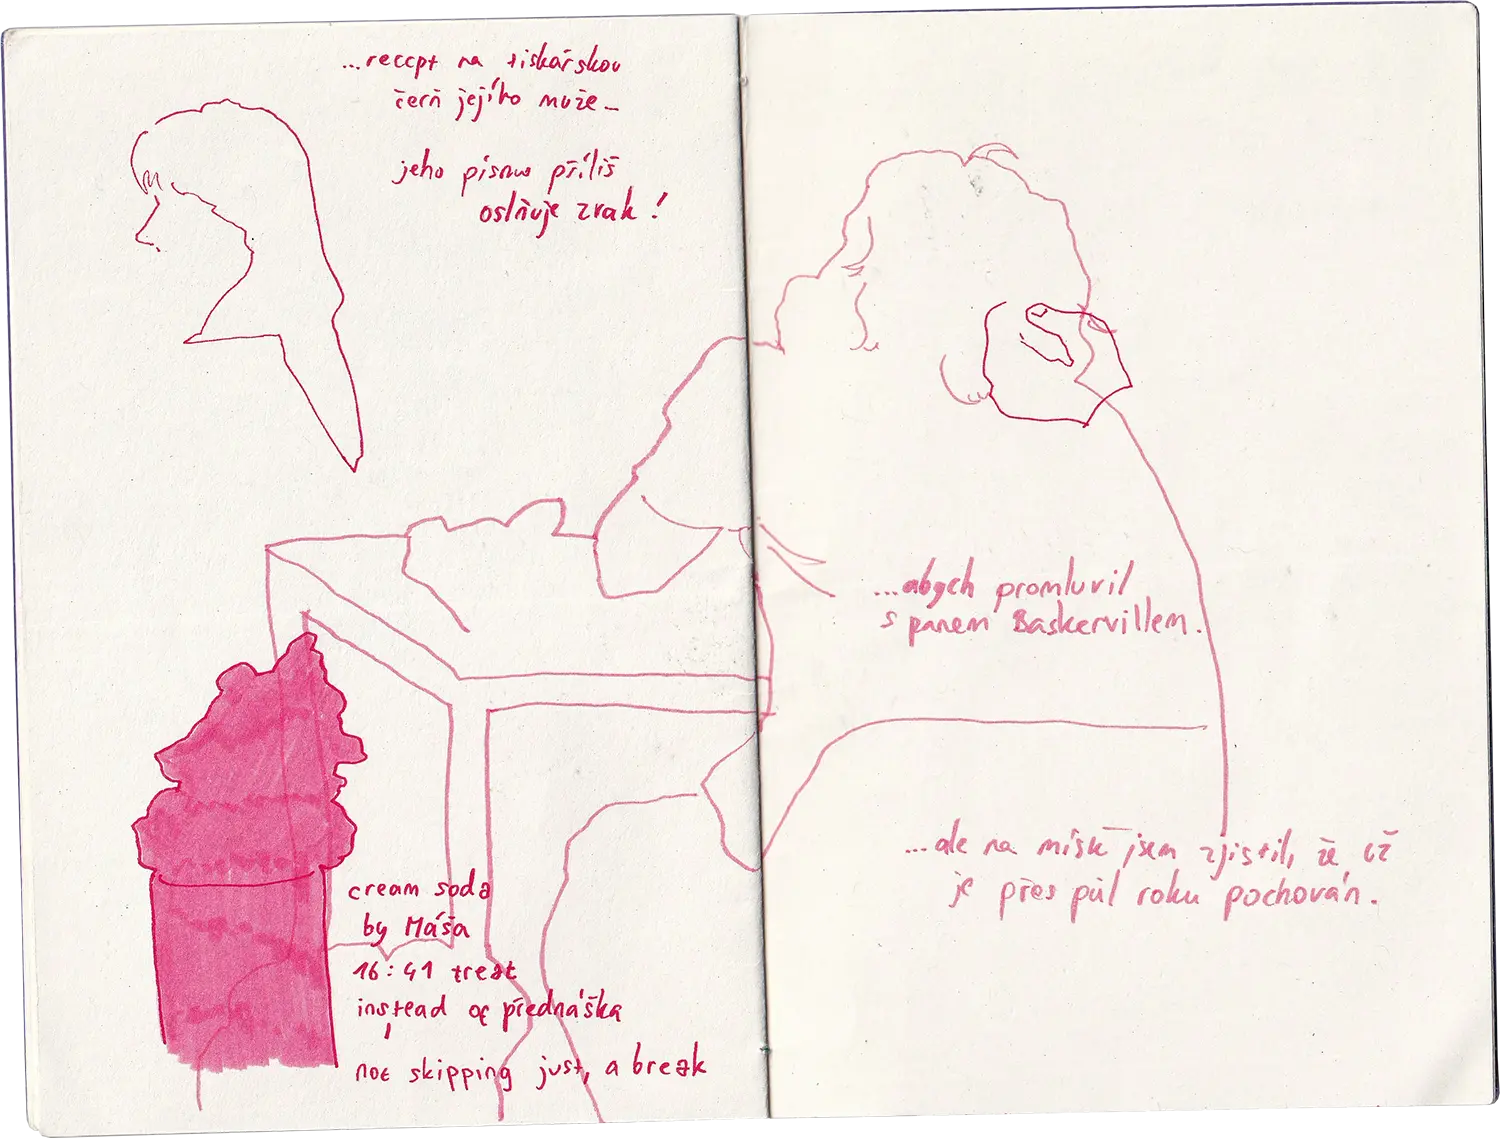 ...recept na tiskářskou
čerň jejího muže_
jeho písmo příliš
oslňuje zrak!
...abych promluvil
s panem Baskervillem.
...ale na místě jsem zjistil, že už
je přes půl roku pochován.
cream soda
by Máša
16:41 treat
instead of přednáška
not skipping just, a break